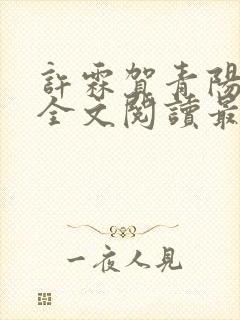 許霖賀青陽
全文閱讀最
一夜人見